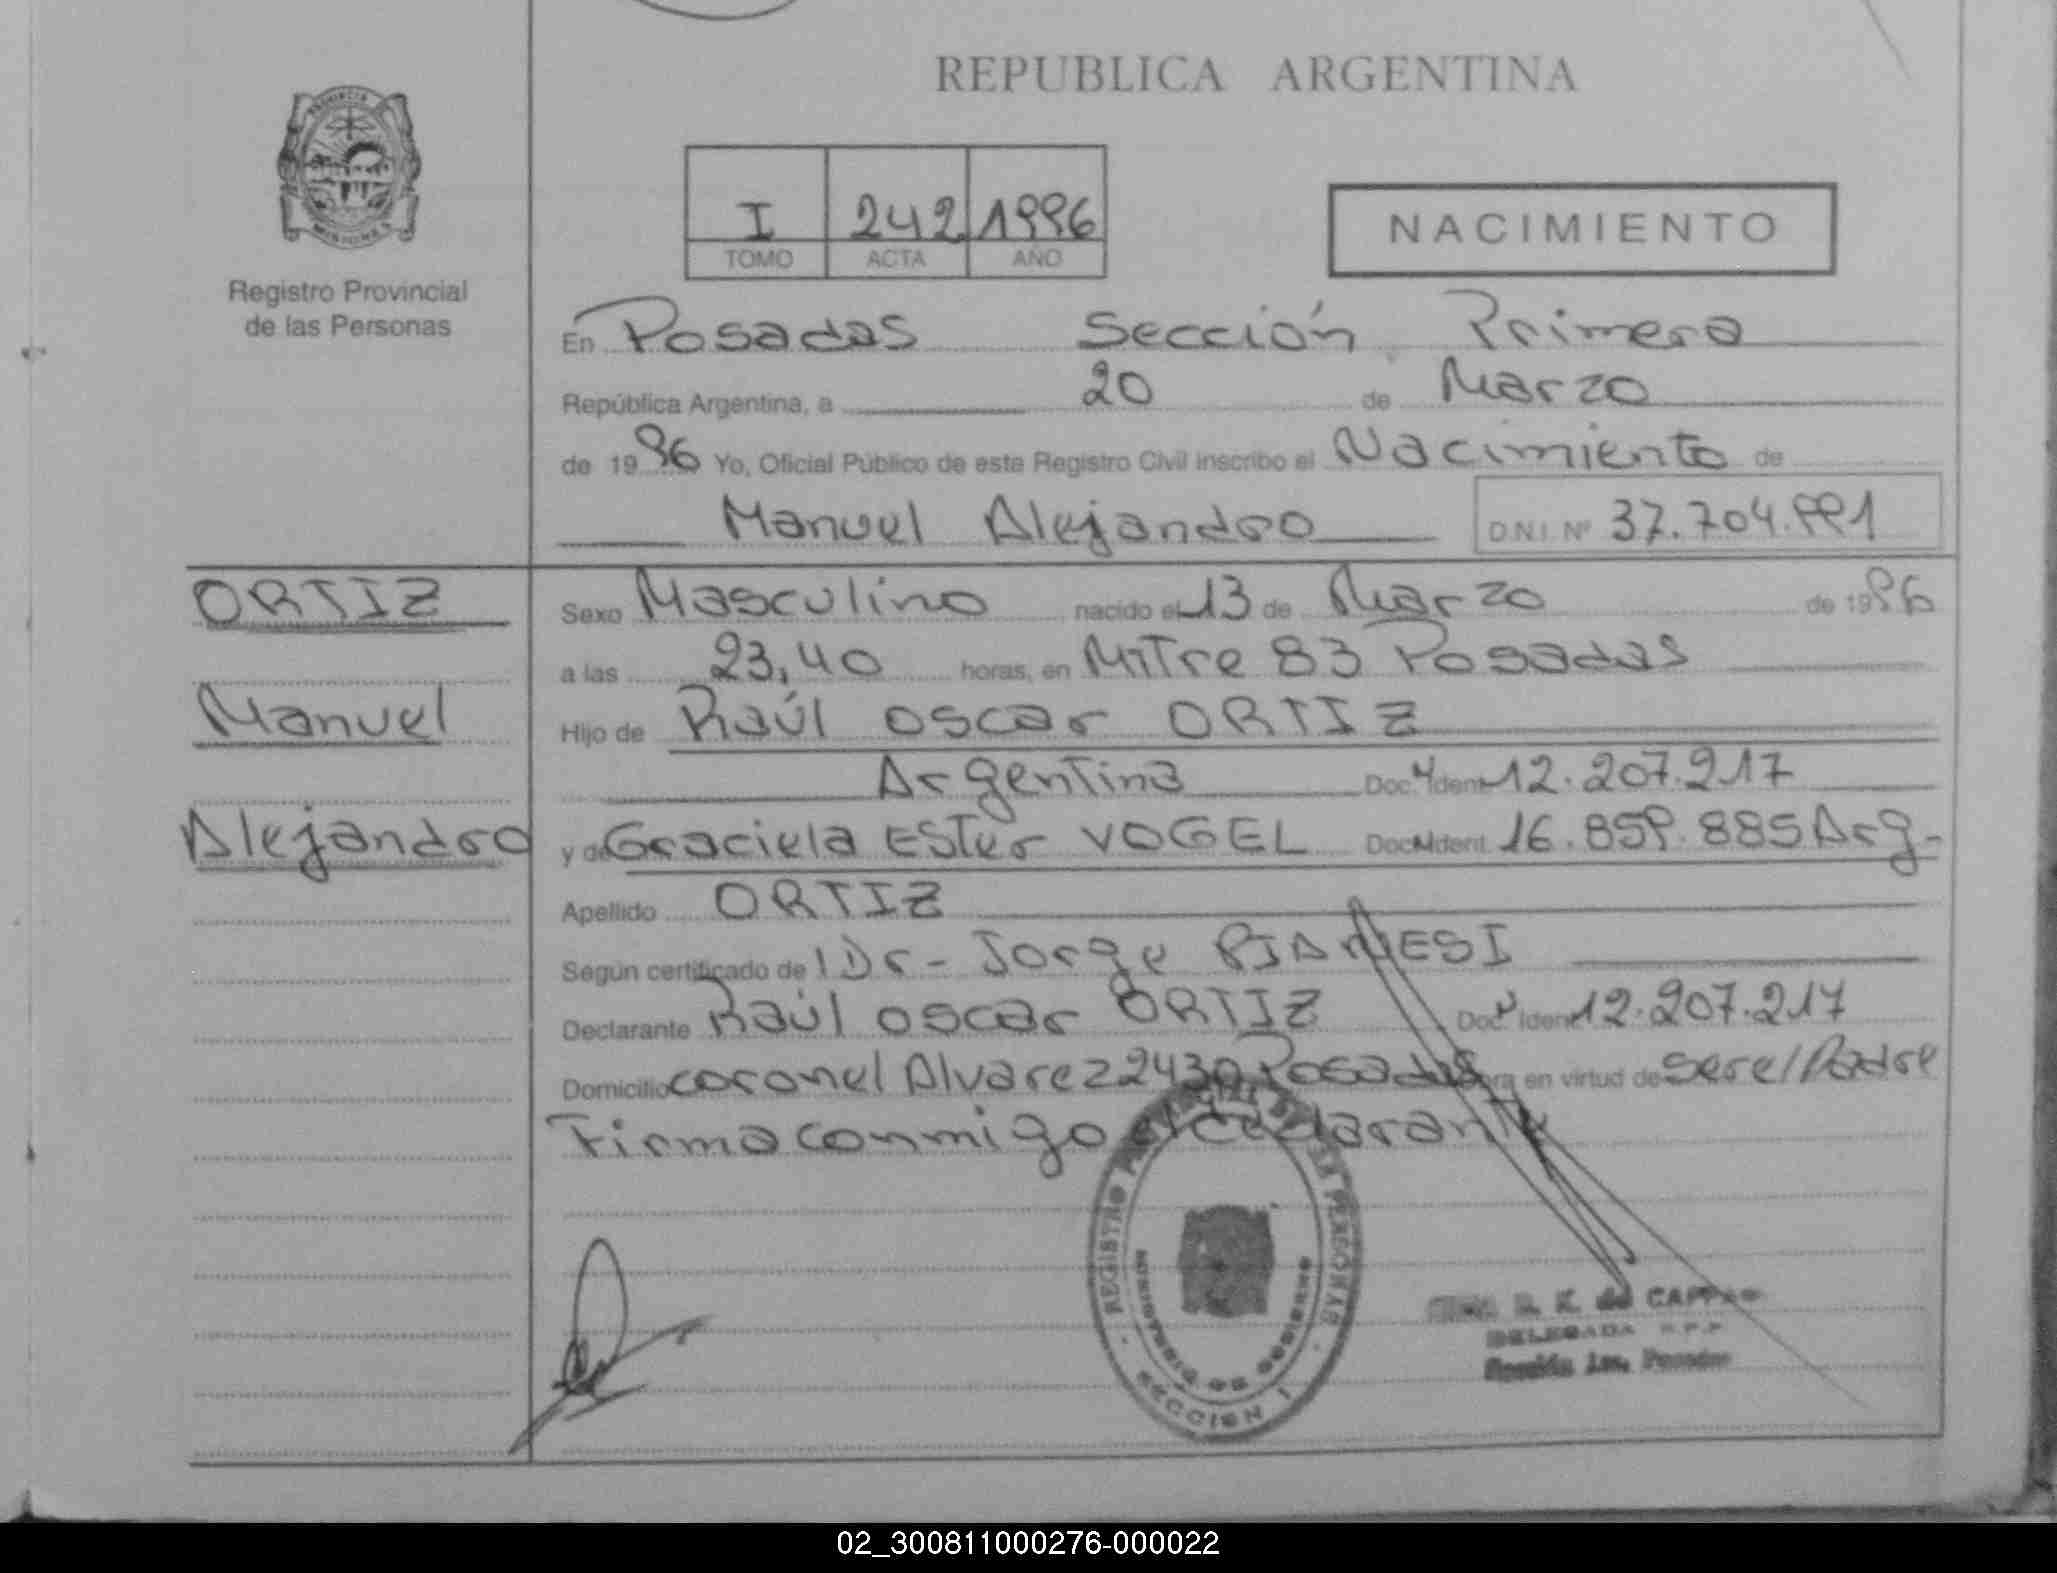 REPUBLICA ARGENTINA
PROVINCIA
MISIONES
Registro Provincial
de las Personas
I 242 1996
TOMO ACTA AÑO
NACIMIENTO
En Posadas Sección Primera
República Argentina, a 20 de Marzo
de 1996 Yo, Oficial Público de este Registro Civil inscribo el Nacimiento de
Manuel Alejandro D.N.I. Nº 37.704.991
ORTIZ
Manuel
Alejandro
Sexo Masculino nacido el 13 de Marzo de 1996
a las 23,40 horas, en Mitre 83 Posadas
Hijo de Raúl Oscar ORTIZ
Argentina Doc. Ident. 12.207.217
y de Graciela Ester VOGEL Doc. Ident. 16.859.885 Arg.
Apellido ORTIZ
Según certificado de Dr. Jorge PIANESI
Declarante Raúl Oscar ORTIZ Doc. Ident. 12.207.217
Domicilio coronel Alvarez 2430 Posadas obra en virtud de ser el Padre
Firma conmigo el declarante
REGISTRO PROVINCIAL DE LAS PERSONAS
MINISTERIO DE GOBIERNO
SECCION 1
R. K. de
DELEGADA R.P.P.
Sección 1ra. Posadas
02_300811000276-000022